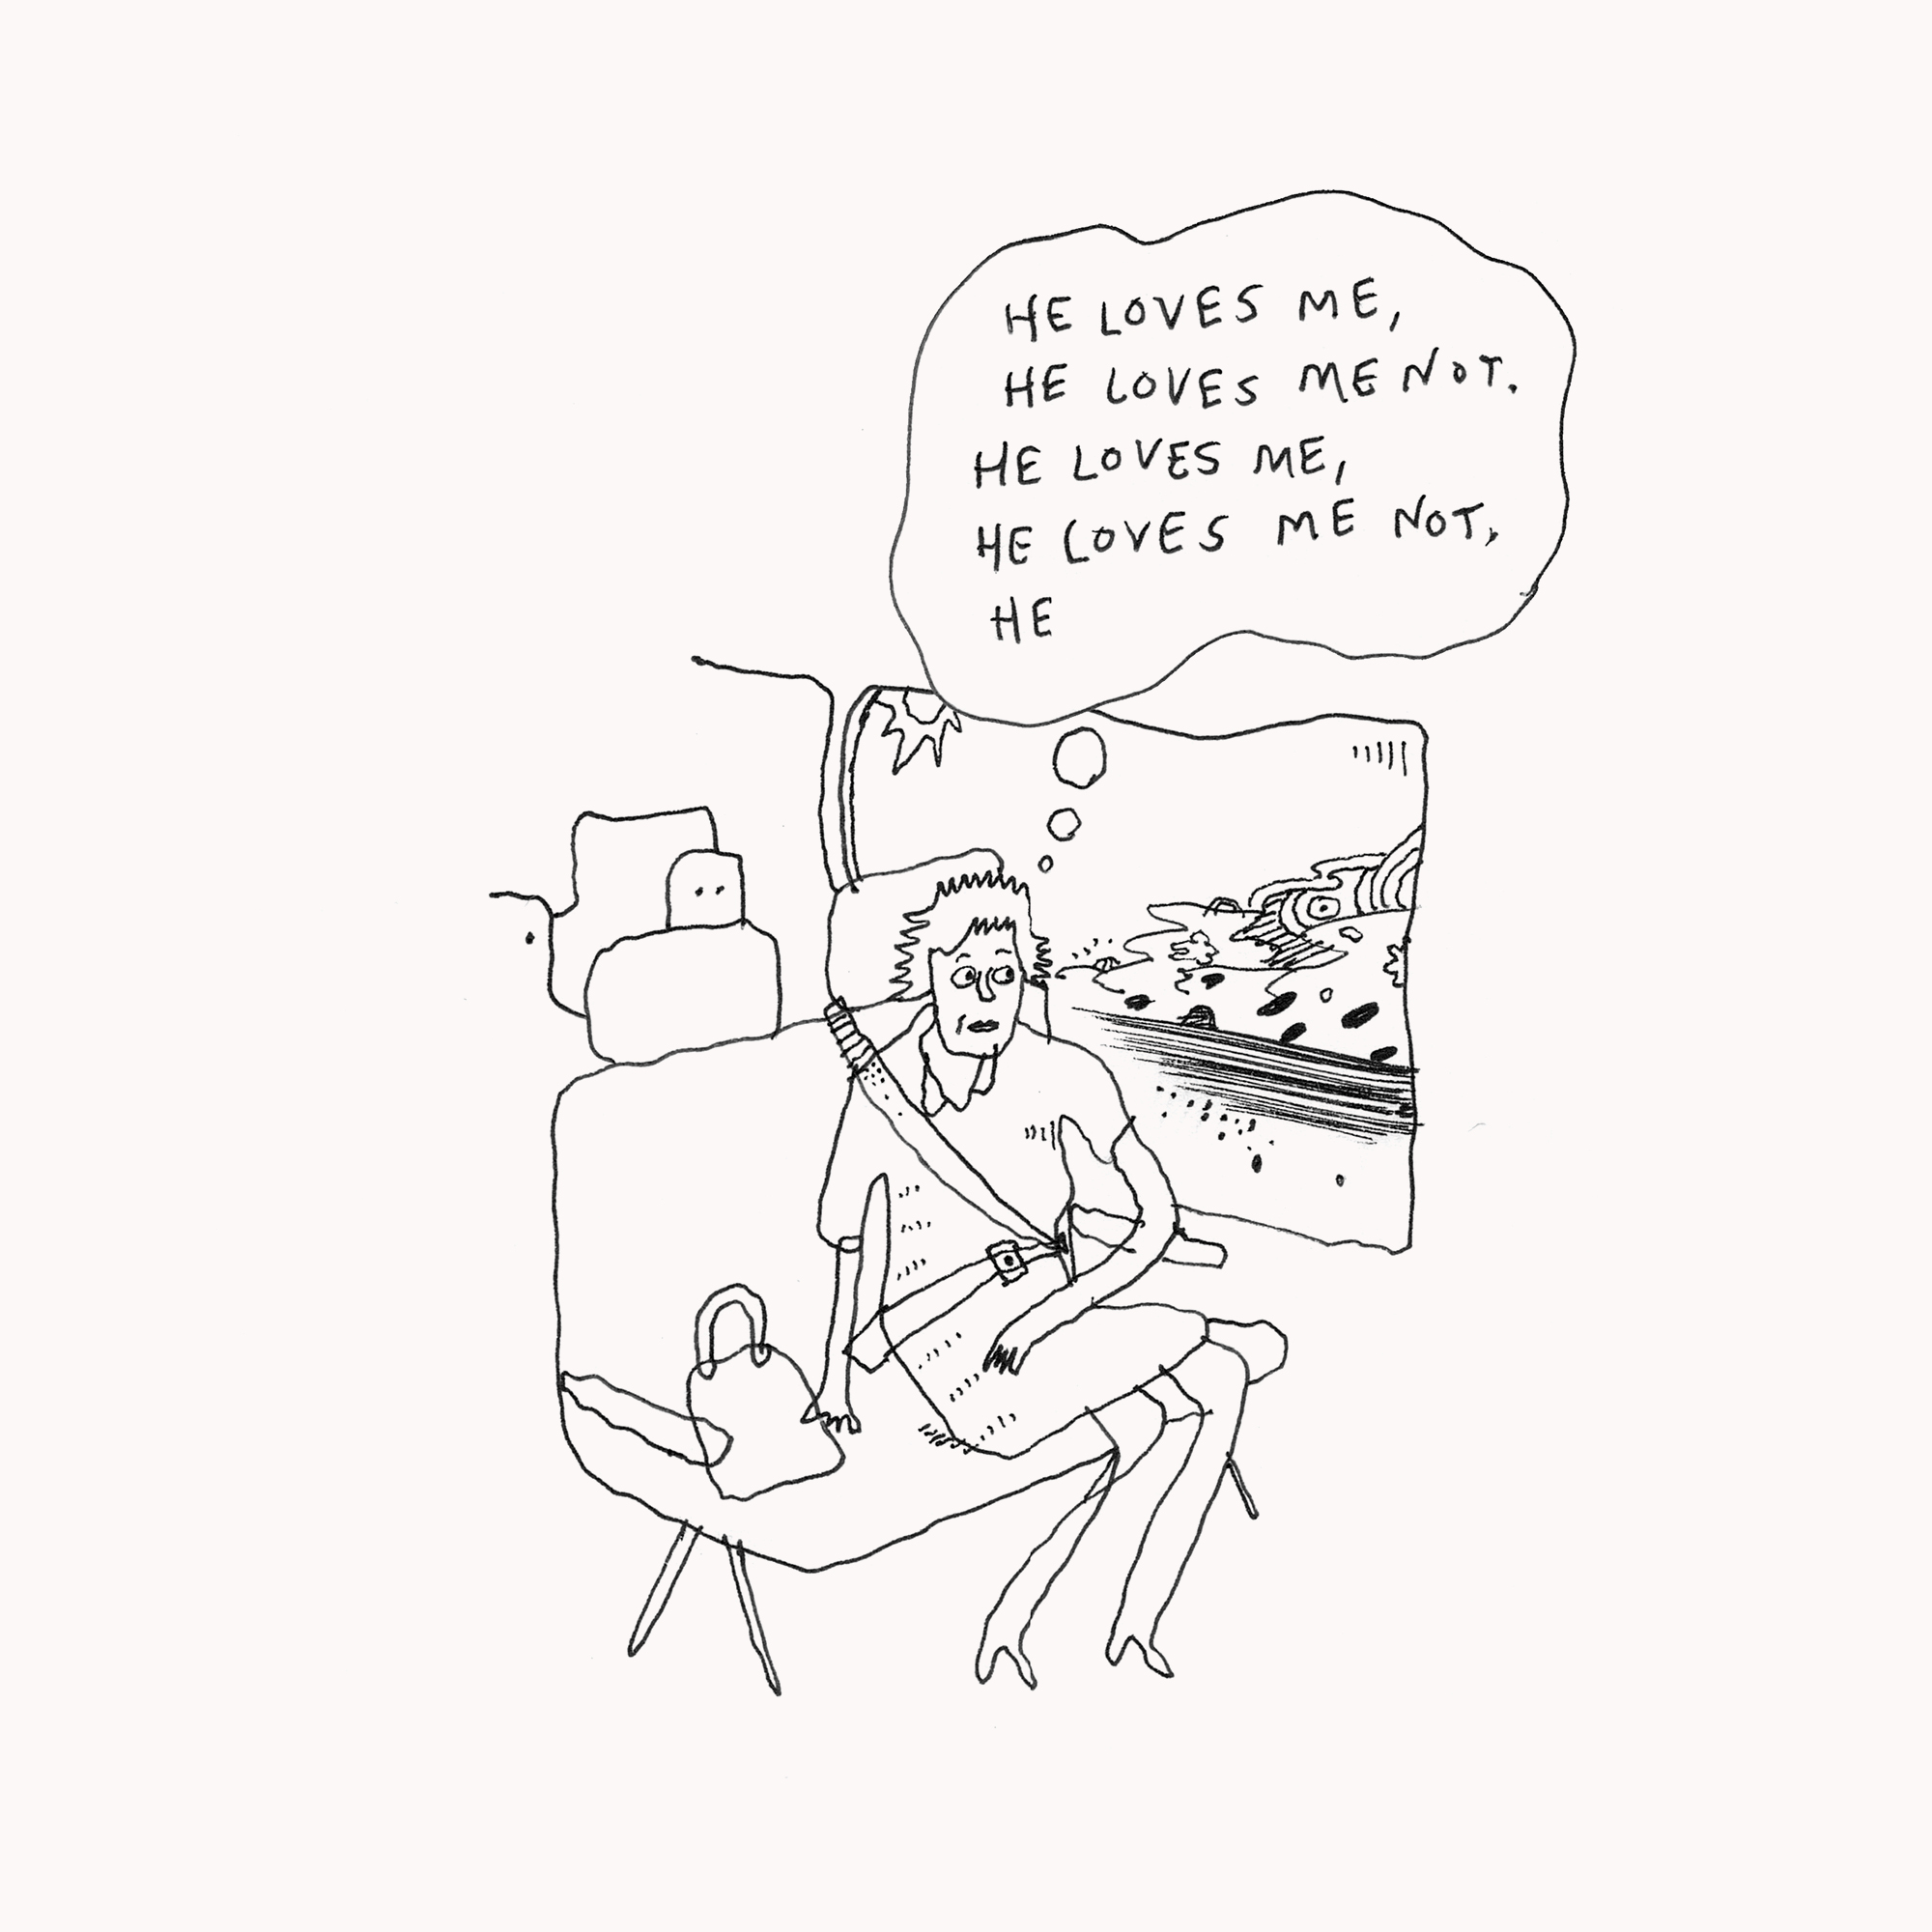 HE LOVES ME,
HE LOVES ME NOT.
HE LOVES ME,
HE LOVES ME NOT,
HE